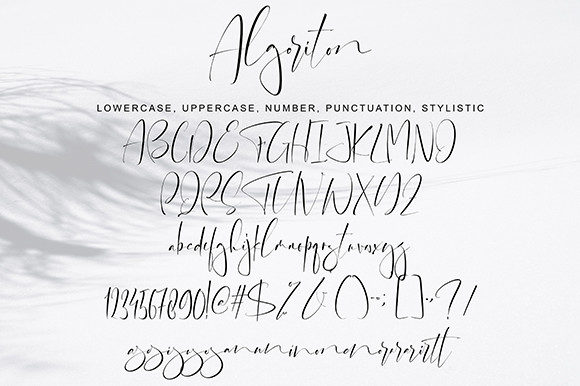 Algoriton
LOWERCASE, UPPERCASE, NUMBER, PUNCTUATION, STYLISTIC
ABCDEFGHIJKLMNO
PQRSTUVWXYZ
abcdefghijklmnopqrstuvwxyz
1234567890!@#$%&()-:;[].,?/